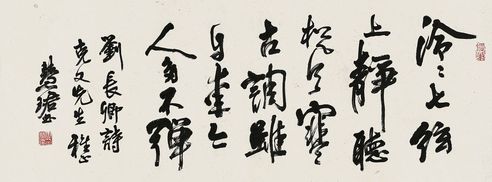 泠〻七弦
上靜聽
松風寒
古調雖
自愛今
人多不彈
劉長卿詩
克文先生雅正
慧珺書